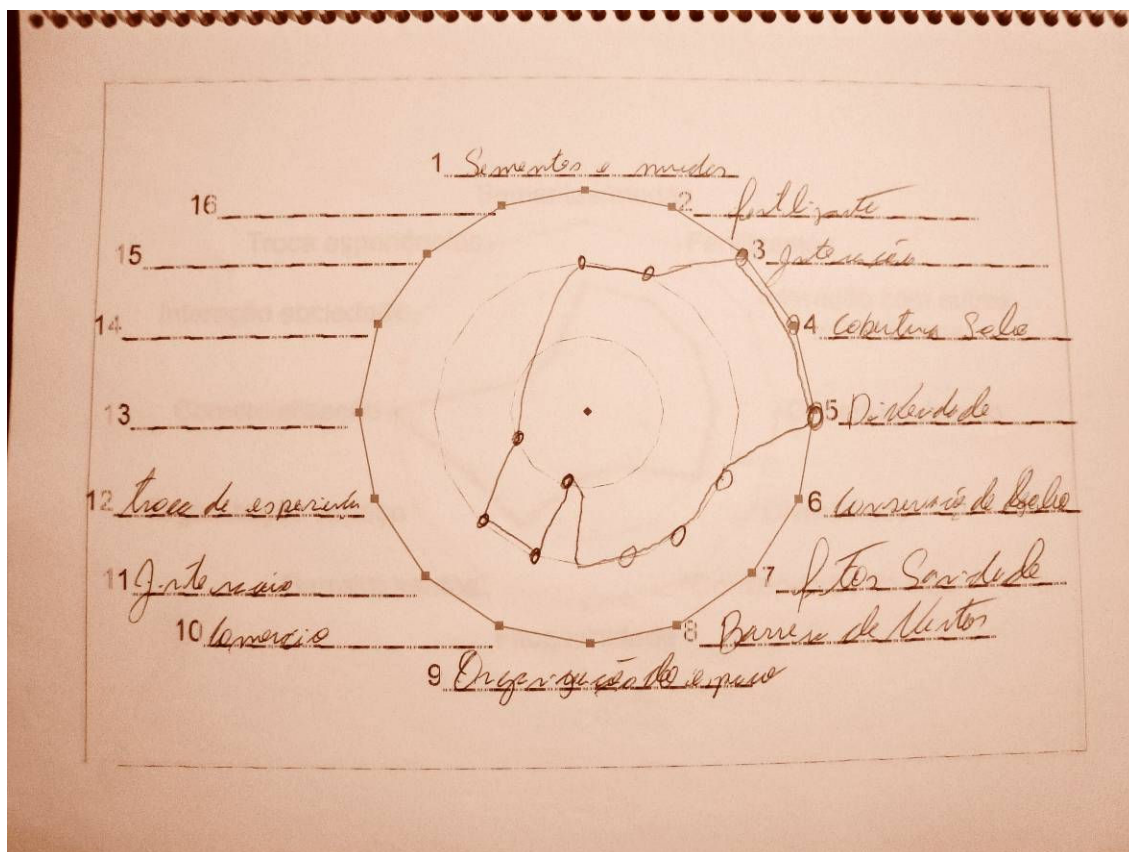 1 Sementes e mudas
2 fertilizante
3 Interação
4 Cobertura Solo
5 Diversidade
6 Conservação de
7 fitos Sanidade
8 Barreira de Ventos
9 Organização do espaço
10 Comercio
11 Interação
12 troca de
13
14
15
16